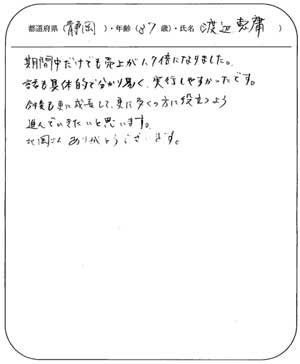 都道府県（静岡）・年齢（37歳）・氏名（渡辺恵庸）
期間中だけでも売上が1.7倍になりました。
話も具体的で分かり易く、実行しやすかったです。
今後も更に成長して、更に多くの方に役立つよう
進んでいきたいと思います。
北岡さん ありがとうございます。